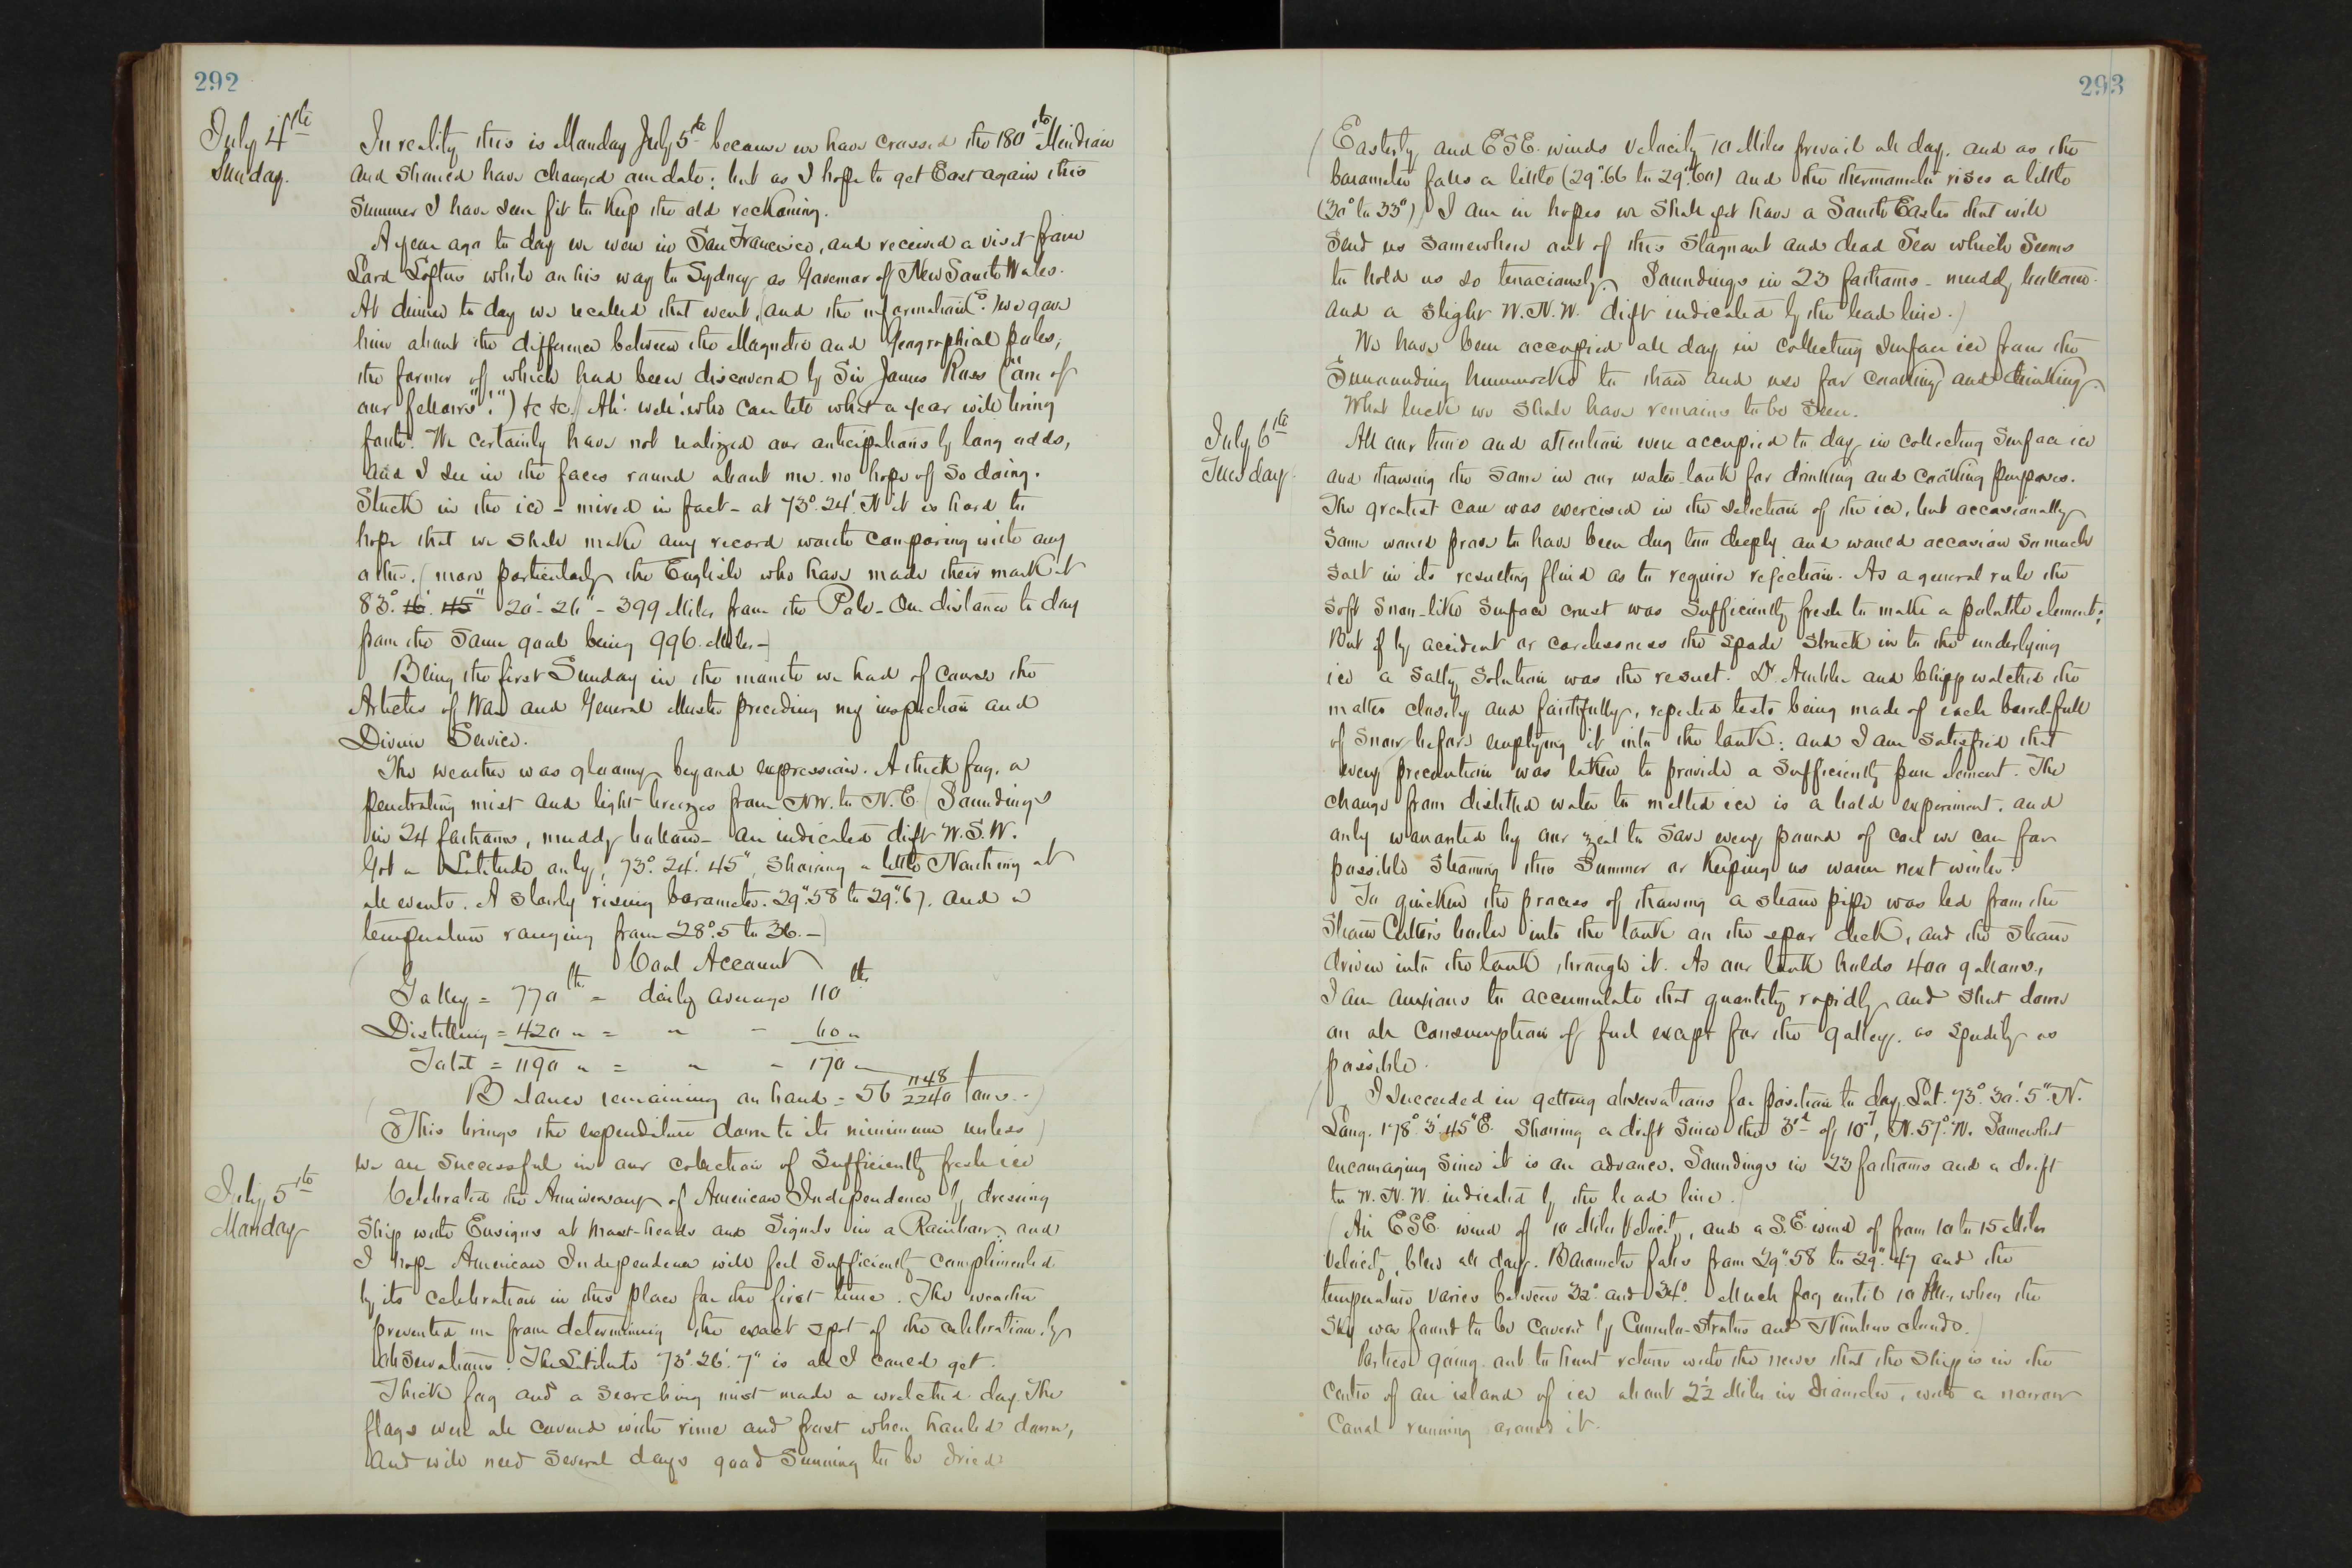 292
July 4th
Sunday.
In reality this is Monday July 5th because we have crossed the 180th Meridian
and should have changed our date; but as I hope to get East again this
Summer I have seen fit to keep the old reckoning.
A year ago to day we were in San Francisco, and received a visit from
Lord Loftus while on his way to Sydney as Governor of New South Wales.
At dinner to day we recalled that event, (and the information(?) we gave
him about the difference between the Magnetic and Geographical poles,
the former of which had been discovered by Sir James Ross ("one of
our fellows"!") &c &c.) Ah! well! who can tell what a year will bring
forth. We certainly have not realized our anticipations by long odds,
and I see in the faces round about me no hope of so doing.
Stuck in the ice - mired in fact - at 73°.24'. N it is hard to
hope that we shall make any record worth comparing with any
other. (more particularly the English who have made their mark at
83°. 16'. 45" 20'- 26" - 399 Miles from the Pole - Our distance to day
from the same goal being 996. Miles -)
Being the first Sunday in the month we had of course the
Articles of War and General Muster preceding my inspection and
Divine Service.
The weather was gloomy beyond expression. A thick fog, a
penetrating mist and light breezes from NW. to N.E. (Soundings
in 24 fathoms, muddy bottom - an indicated drift W.S.W.
Got a Latitude only, 73°. 24'. 45", Showing a little Northing at
all events. A slowly rising barometer. 29".58 to 29".67. and a
temperature ranging from 28°.5 to 36. -)
Coal Account
Galley = 770 lbs = daily average 110 lbs
Distilling = 420 " = " - 60 "
Total = 1190 " = " - 170 "
Balance remaining on hand = 56 1148/2240 tons. -)
(This brings the expenditure down to its minimum unless)
we are successful in our collection of sufficiently fresh ice
July 5th
Monday
Celebrated the Anniversary of American Independence by dressing
Ship with Ensigns at Mast-heads and Signals in a Rainbow, and
I hope American Independence will feel sufficiently complimented
by its celebration in this place for the first time. The weather
prevented me from determining the exact spot of the celebration by
observations. The Latitude 73°. 26'. 7" is all I could get.
Thick fog and a searching mist made a wretched day. The
flags were all covered with rime and frost when hauled down,
and will need several days good Sunning to be dried
293
(Easterly and ESE. winds velocity 10 Miles prevail all day, and as the
barometer falls a little (29".66 to 29".60) and the thermometer rises a little
(30° to 33°) I am in hopes we shall yet have a South Easter that will
send us somewhere out of this stagnant and dead Sea which seems
to hold us so tenaciously. Soundings in 23 fathoms - muddy bottom -
and a slight W.N.W. drift indicated by the lead line.)
We have been occupied all day in collecting Surface ice from the
Surrounding hummocks to thaw and use for cooking and drinking.
What luck we shall have remains to be seen.
July 6th
Tuesday.
All our time and attention were occupied to day in collecting Surface ice
and thawing the same in our water tank for drinking and cooking purposes.
The greatest care was exercised in the selection of the ice, but occasionally
some would prove to have been dug too deeply and would occasion so much
salt in its resulting fluid as to require rejection. As a general rule the
soft snow-like surface crust was sufficiently fresh to make a potable element;
But if by accident or carelessness the spade struck in to the underlying
ice a salty solution was the result. Dr Ambler and Chipp watched the
matter closely and faithfully, repeated tests being made of each barrel-full
of snow before emptying it into the tank; and I am satisfied that
every precaution was taken to provide a sufficiently pure element. The
change from distilled water to melted ice is a bold experiment, and
only warranted by our zeal to save every pound of coal we can for
possible steaming this Summer or keeping us warm next winter.
To quicken the process of thawing a steam pipe was led from the
Steam Cutter's boiler into the tank on the spar deck, and the steam
driven into the tank through it. As our tank holds 400 gallons,
I am anxious to accumulate that quantity rapidly and shut down
on all consumption of fuel except for the galley, as speedily as
possible.
(I succeeded in getting observations for position to day, Lat. 73°. 30'. 5". N.
Long. 178°. 3'. 45" E. Showing a drift since the 3rd of 10.7, N. 57°. W. Somewhat
encouraging since it is an advance. Soundings in 23 fathoms and a drift
to W.N.W. indicated by the lead line.)
(An ESE. wind of 10 Miles Velocity, and a S.E. wind of from 10 to 15 Miles
Velocity, blew all day. Barometer falls from 29".58 to 29".47 and the
temperature varies between 32° and 34°. Much fog until 10 when the
sky was found to be covered by Cumulo-Stratus and Nimbus clouds.)
Parties going out to hunt return with the news that the Ship is in the
centre of an island of ice about 2½ Miles in diameter, with a narrow
canal running around it.